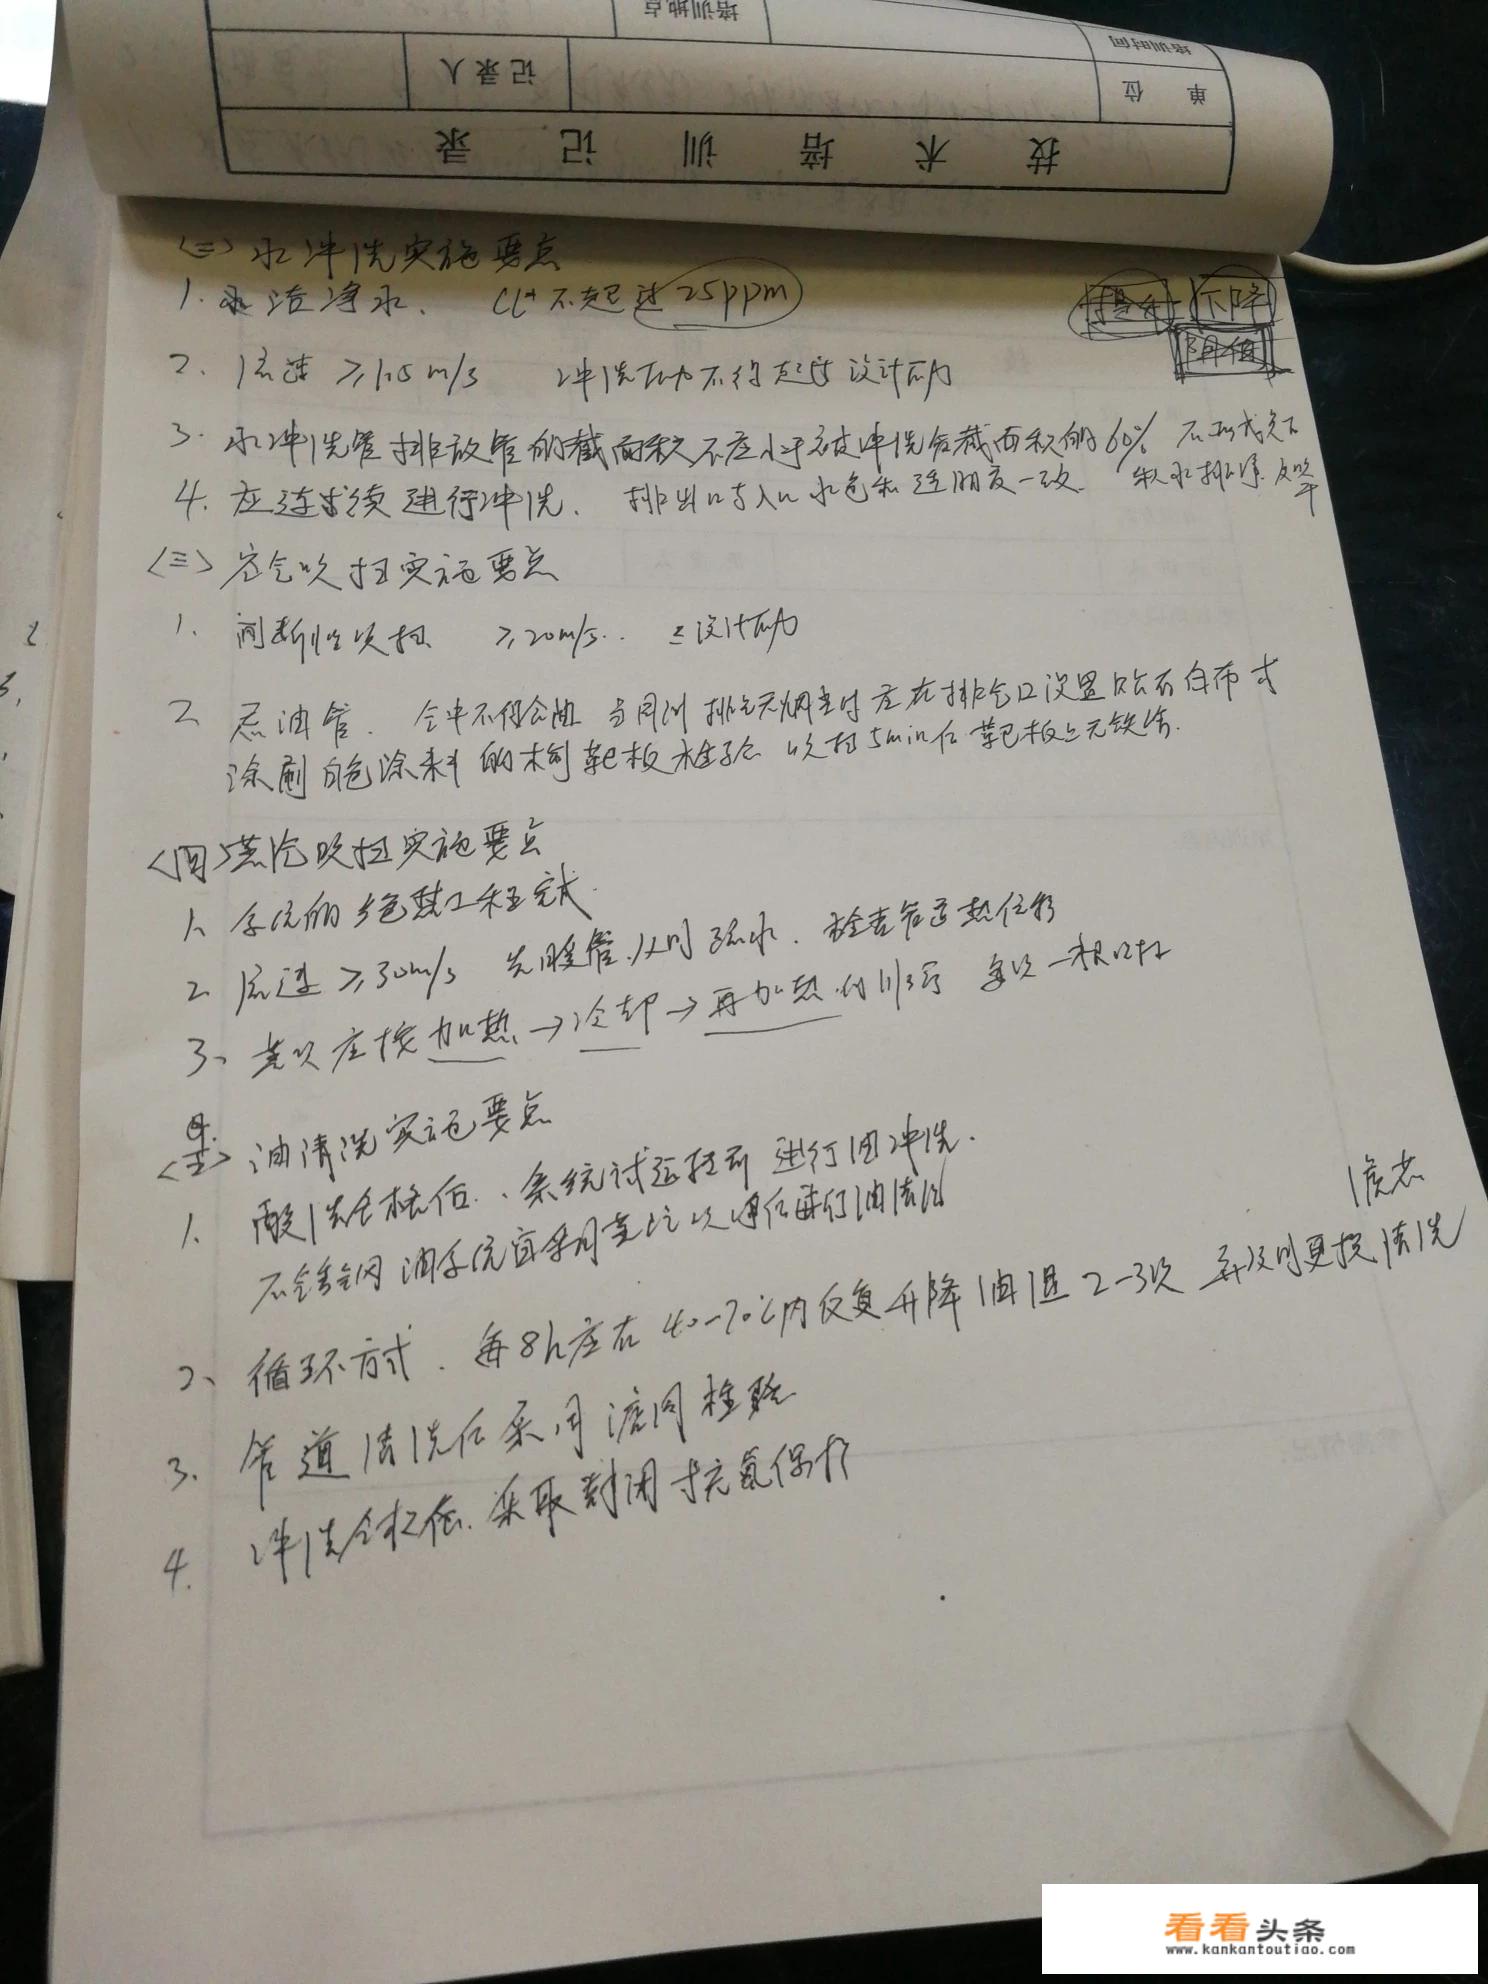 培训地点
培训时间
记录人
单位
技术培训记录
(二) 水冲洗实施要点
1. 水洁净水. Cl 不超过 25ppm
下降
阴值
2. 流速 ≥1.5m/s 冲洗压力不得超过设计压力
3. 水冲洗管排放管的截面积不应小于被冲洗管截面积的60% 不形成负压
4. 应连续进行冲洗. 排出口与入口水色和透明度一致. 积水排净.
(三) 空气吹扫实施要点
1. 间断性吹扫 ≥20m/s. ≤设计压力
2. 忌油管. 气中不得含油 当目测排气无烟尘时 应在排气口设置贴有白布或
涂刷白色涂料的木制靶板检验 吹扫5min后靶板上无铁锈.
(四) 蒸汽吹扫实施要点
1、系统的绝热工程完成.
2、流速≥30m/s 先暖管.及时疏水. 检查管道热位移
3、蒸吹应按加热→冷却→再加热的顺序 每次一根吹扫
(五) 油清洗实施要点
1. 酸洗合格后. 系统试运转前 进行油冲洗.
不锈钢油系统宜采用蒸汽吹净后进行油清洗
2、循环方式. 每8h应在40-70℃内反复升降油温2-3次 并及时更换清洗
滤芯
3. 管道清洗后采用滤网检验
4. 冲洗合格后. 采取封闭或充氮保护
看看头条
www.kankantoutiao.com